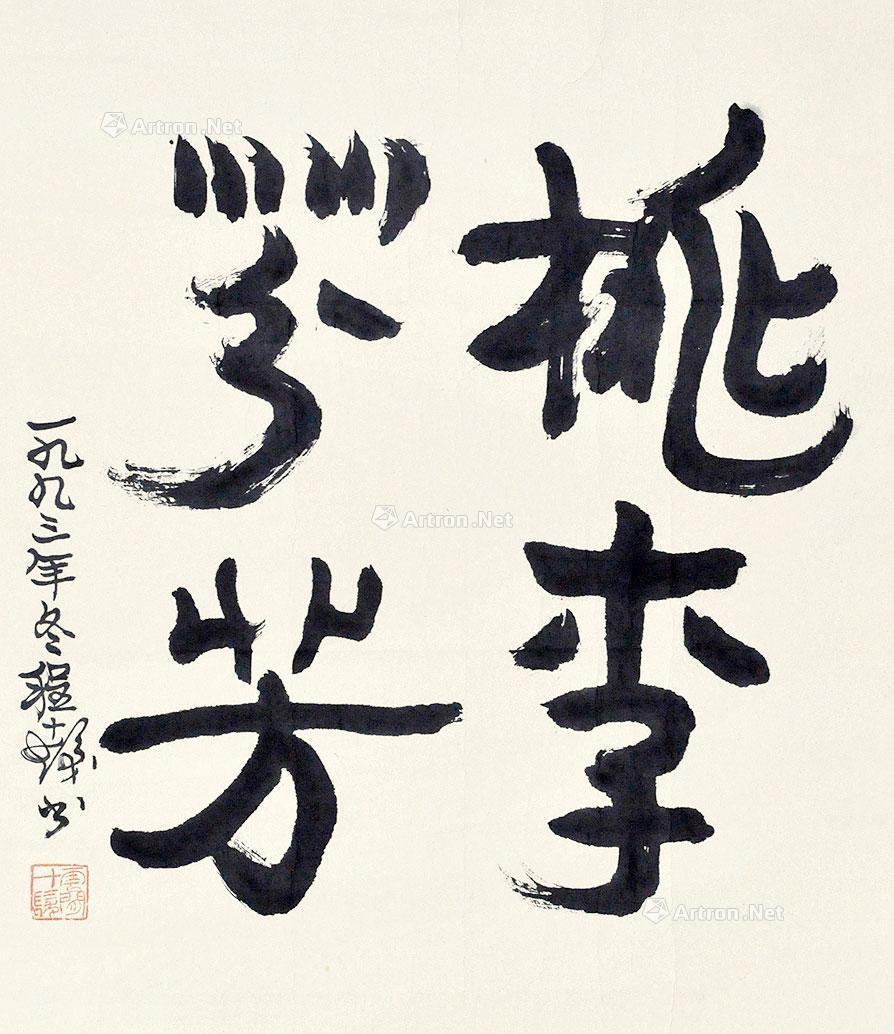 桃李
芬芳
一九九三年冬程十髮书
雲間十髮
Artron.Net
Artron.Net
Artron.Net